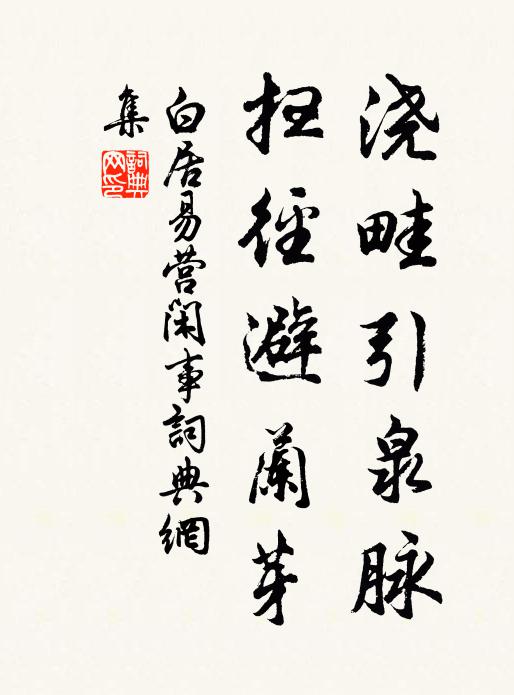 浇畦引泉脉
扫径避蘭芽
白居易营闲事詞典網
集
詞典
网印